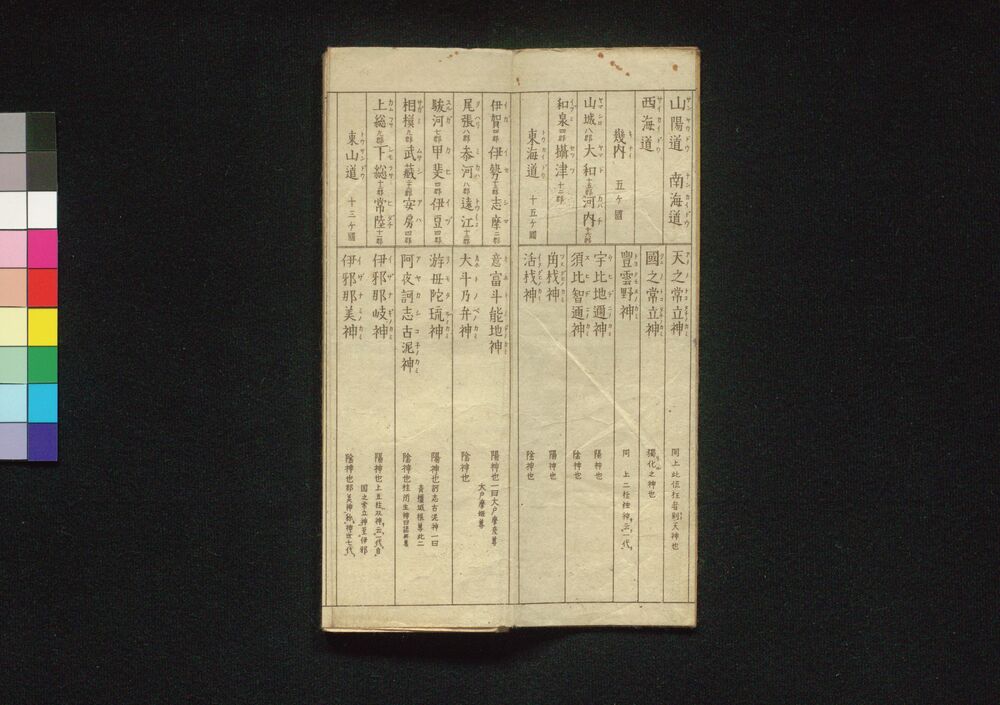 山陽道 南海道
西海道
畿内 五ケ國
山城八郡 大和十五郡 河内十六郡
和泉四郡 攝津十二郡
東海道 十五ケ國
天之常立神 同上此伍柱者別天神也
國之常立神 獨化之神也
豐雲野神 同 上二柱独神云一代
宇比地邇神 陽神也
須比智邇神 陰神也
角杙神 陽神也
活杙神 陰神也
伊賀四郡 伊勢十三郡 志摩二郡
尾張八郡 叅河八郡 遠江十三郡
駿河七郡 甲斐四郡 伊豆四郡
相模九郡 武藏 安房四郡
上総九郡 下総十二郡 常陸十一郡
東山道 十三ケ國
意富斗能地神 陽神也一曰大戸摩彦尊
大戸摩姫尊
大斗乃弁神 陰神也
游毋陀琉神 陽神也訶志古泥神一曰
青橿城根尊此二
阿夜訶志古泥神 陰神也柱
伊邪那岐神 陽神也上五柱双神云一代自
国之常立神至伊邪
伊邪那美神 陰神也那美神称神世七代